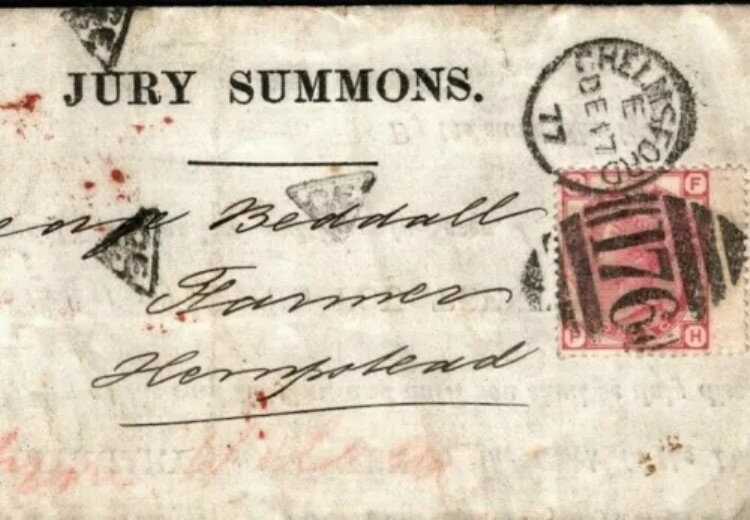 JURY SUMMONS.
CHELMSFORD
E
DE 17
77
F
176
P H
Beddall
Farmer
Hempstead